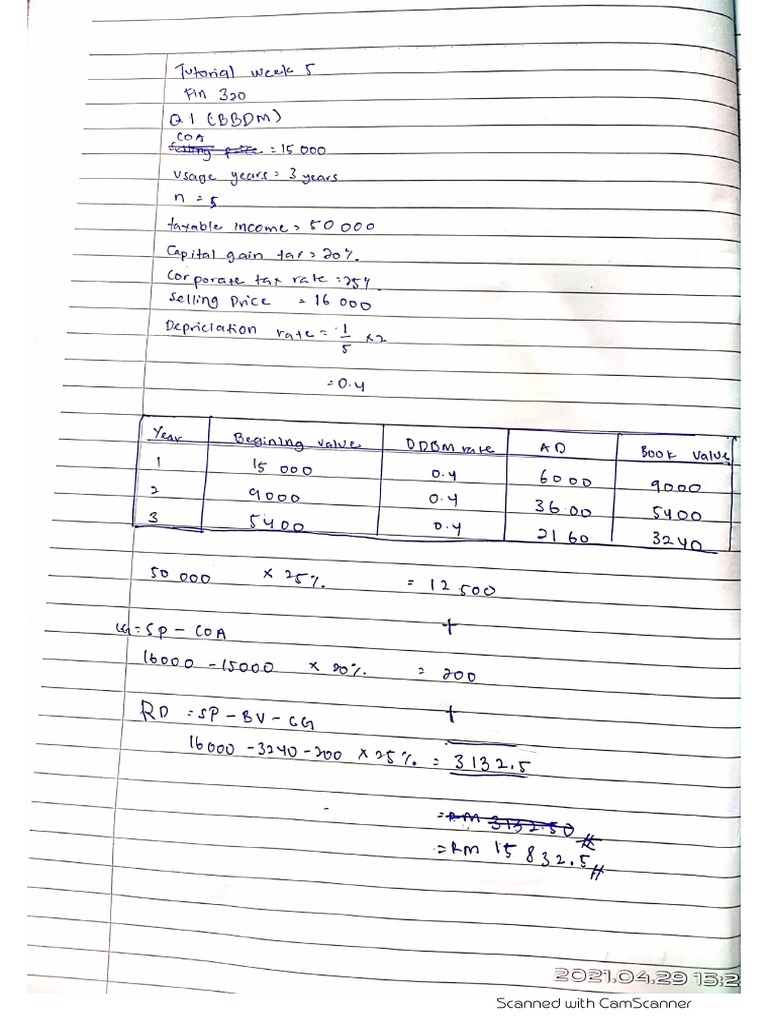 Tutorial week 5
Fin 320
Q1 (BBDM)
COA
selling price = 15 000
usage years = 3 years
n = 5
taxable income = 50 000
Capital gain tax = 20%.
Corporate tax rate = 25%.
Selling Price = 16 000
Depriciation rate = 1/5 x2
= 0.4
Year Begining value DDBM rate AD Book value
1 15 000 0.4 6000 9000
2 9000 0.4 36.00 5400
3 5400 0.4 2160 3240
50 000 x 25% = 12 500
+
CG = SP - COA
16000 - 15000 x 20% = 200
+
RD = SP - BV - CG
16000 - 3240 - 200 x 25% = 3132.5
= RM 3132.50 #
= RM 15 832.5 #
2021.04.29 15:2
Scanned with CamScanner